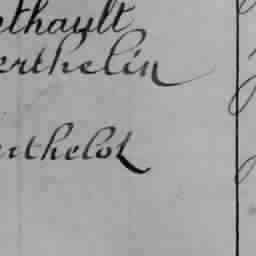 ethault
erthelin
erthelot